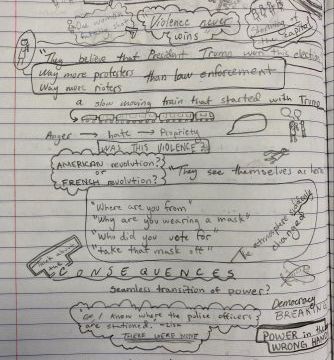 Violence never
wins"
Storming of
the capital
"They believe that President Trump won this election
Way more protesters than law enforcement
Way more rioters
a slow moving train that started with Trump
Anger → hate → Propriety
WAS THIS VIOLENCE?
AMERICAN revolution?
or
FRENCH revolution?
"They see themselves as hero
"Where are you from"
"Why are you wearing a mask"
"Who did you vote for"
"take that mask off"
The atmosphere
changed
CONSEQUENCES
Seamless transition of power?
Democracy
BREAKING
I know where the police officers
are stationed."
THERE WERE NONE
POWER in the
WRONG HANDS